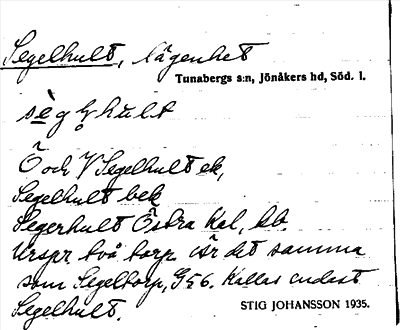 Segelhult, lägenhet
Tunabergs s:n, Jönåkers hd, Söd. l.
sègḷhult
Ö och V Segelhult ek,
Segelhult bek
Segerhult Östra hal, kb.
Urspr. två torp. Är det samma
som Segeltorp, G56. Kallas endast
Segelhult.
STIG JOHANSSON 1935.